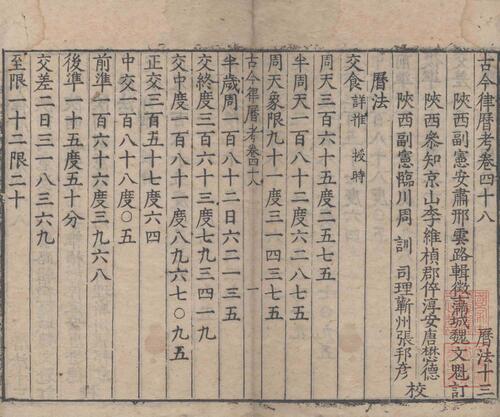 古今律曆考卷四十八 曆法十三
陝西副憲安肅邢雲路輯徵滿城魏文魁訂
陝西參知京山李維楨郡倅淳安唐懋德
陝西副憲臨川周 訓 司理蘄州張邦彥 校
曆法
交食 詳推 授時
周天三百六十五度二五七五
半周天一百八十二度六二八七五
周天象限九十一度三一四三七五
古今律曆考卷四十八 一
半歲周一百八十二日六二一二五
交終度三百六十三度七九三四一九
交中度一百八十一度八九六七〇九五
正交三百五十七度六四
中交一百八十八度〇五
前準一百六十六度三九六八
後準一十五度五十分
交差二日三一八三六九
至限一十二限二十